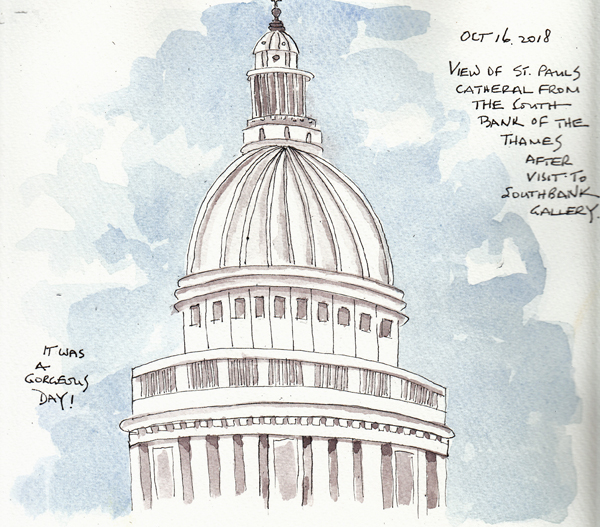 OCT 16. 2018
VIEW OF ST. PAULS
CATHERAL FROM
THE SOUTH
BANK OF THE
THAMES
AFTER
VISIT TO
SOUTHBANK
GALLERY.
IT WAS
A
GORGEOUS
DAY!